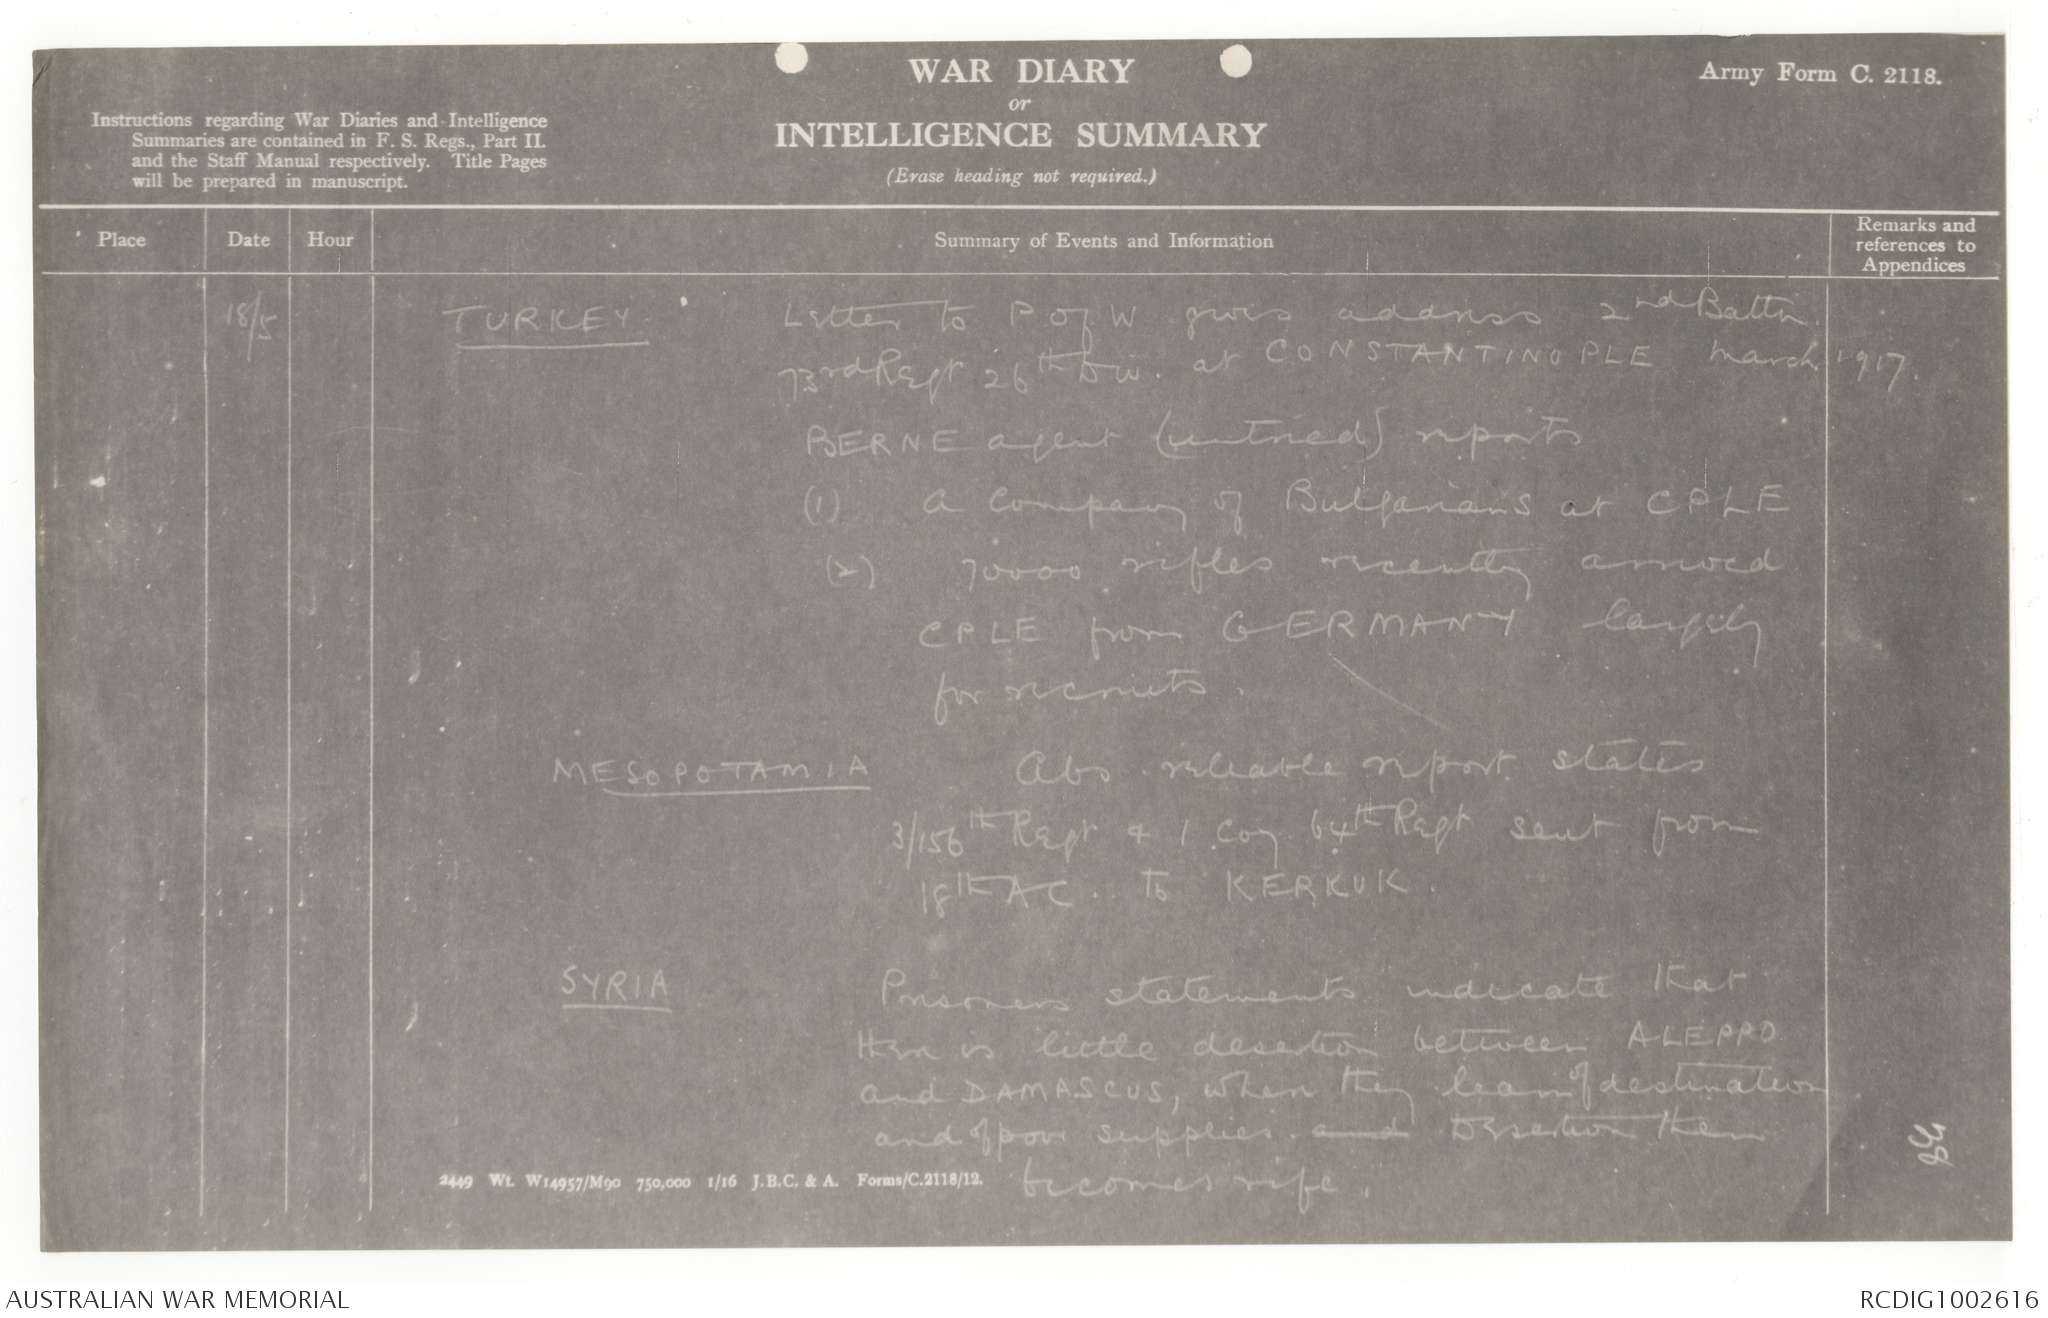 WAR DIARY
or
INTELLIGENCE SUMMARY
(Erase heading not required.)
Army Form C. 2118.
Instructions regarding War Diaries and Intelligence
Summaries are contained in F. S. Regs., Part II.
and the Staff Manual respectively. Title Pages
will be prepared in manuscript.
Place Date Hour Summary of Events and Information Remarks and
references to
Appendices
18/5 TURKEY Letter to P of W gives address 2nd Battn.
73rd Regt 26th Div. at CONSTANTINOPLE March 1917.
BERNE agent (untried) reports
(1) a Company of Bulgarians at CPLE
(2) 70000 rifles recently arrived
CPLE from GERMANY largely
for recruits.
MESOPOTAMIA Abs. reliable report states
3/156th Regt & 1 Coy 64th Regt sent from
18th AC. to KERKUK.
SYRIA Prisoners statements indicate that
there is little desertion between ALEPPO
and DAMASCUS, when they learn of destination
and of poor supplies and Desertion then
becomes rife.
2449 Wt. W14957/M90 750,000 1/16 J.B.C. & A. Forms/C.2118/12.
38
AUSTRALIAN WAR MEMORIAL
RCDIG1002616